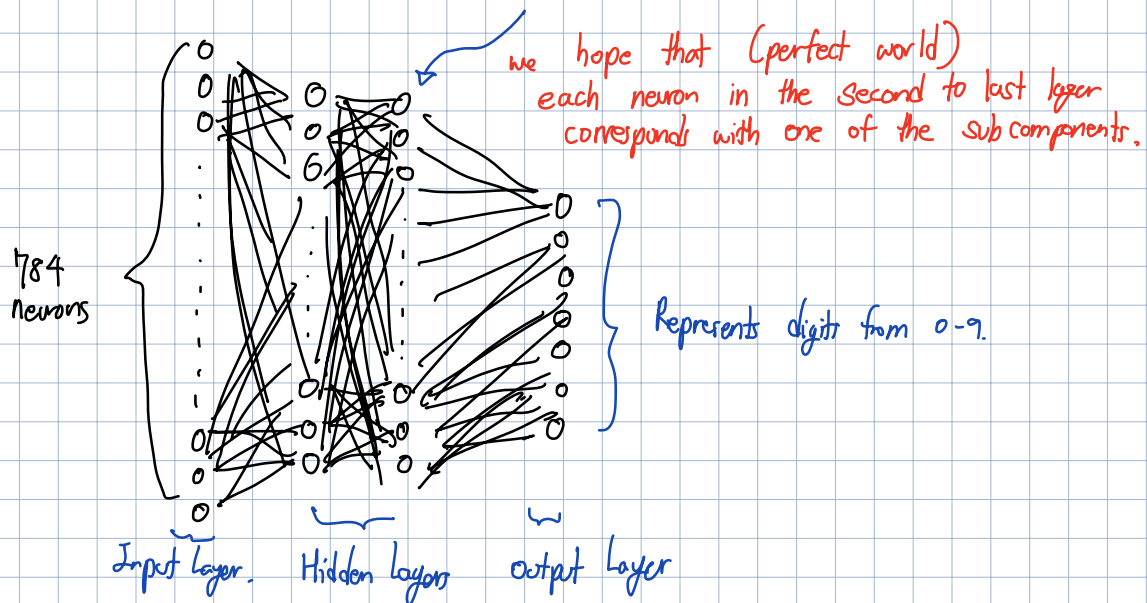 we hope that (perfect world)
each neuron in the second to last layer
corresponds with one of the subcomponents.
784
neurons
Represents digits from 0-9.
Input Layer.
Hidden Layers
Output Layer